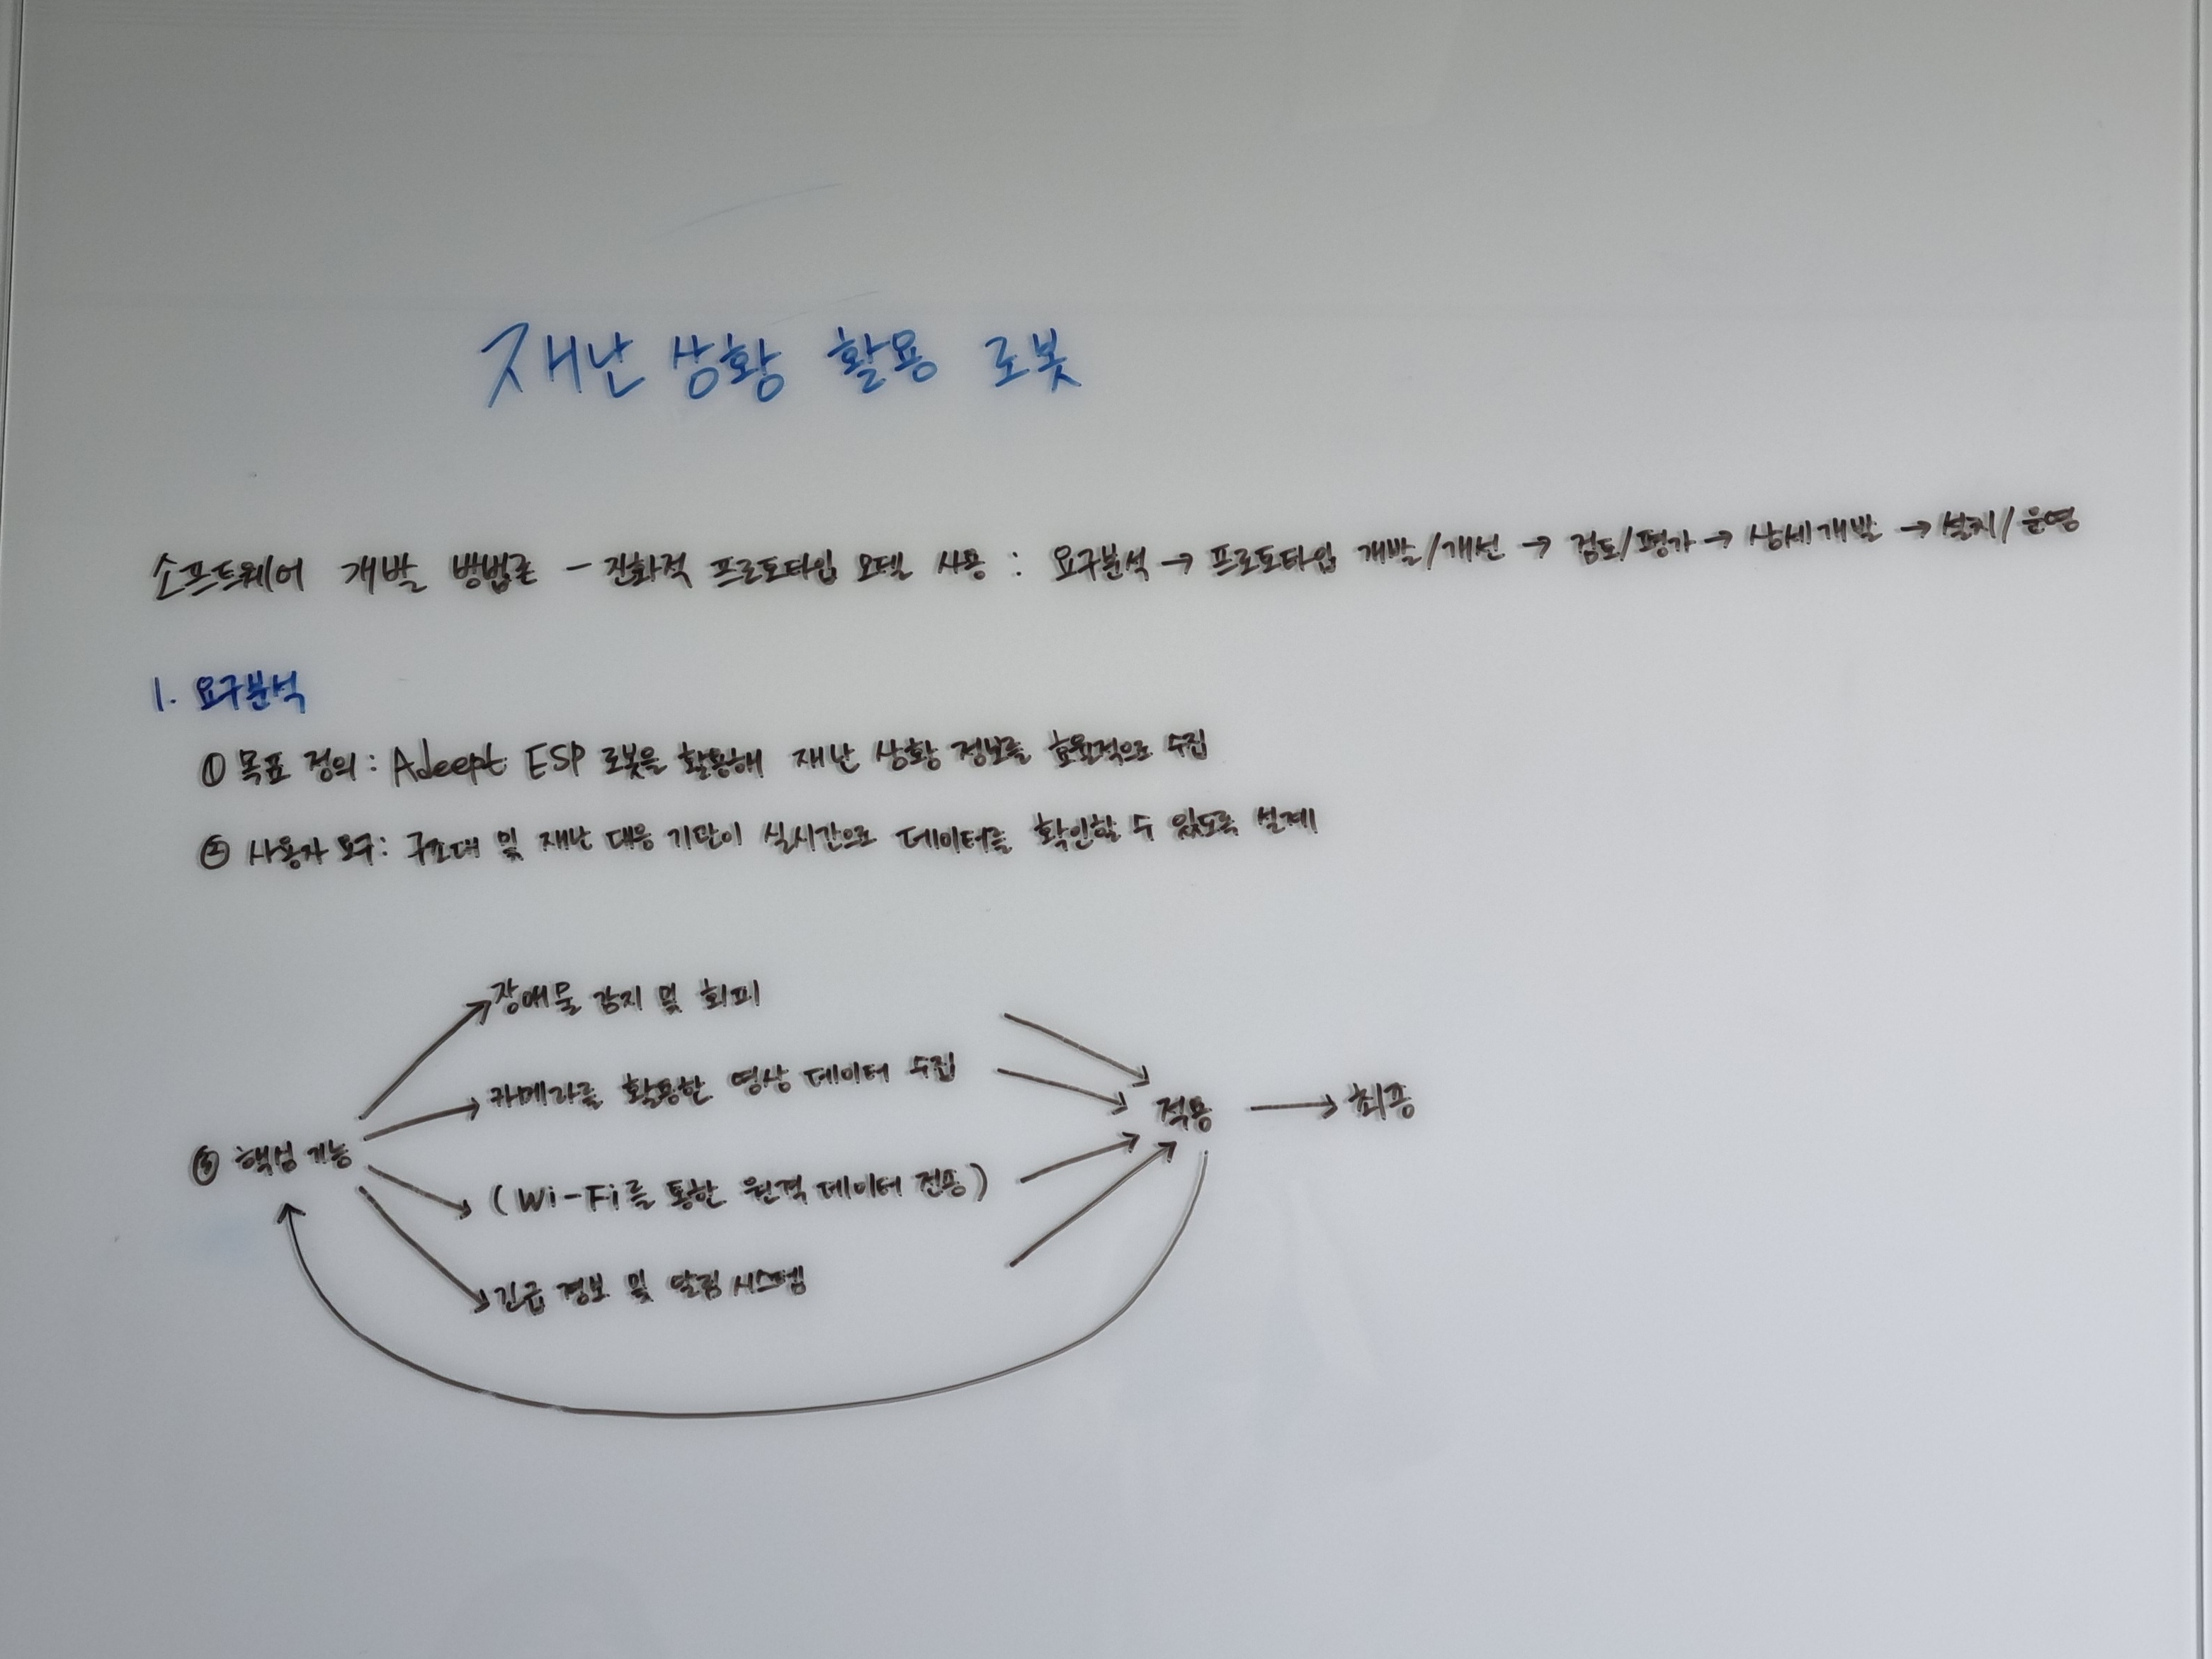 재난 상황 활용 로봇
소프트웨어 개발 방법론 - 진화적 프로토타입 모델 사용 : 요구분석 → 프로토타입 개발/개선 → 검토/평가 → 상세개발 → 설치/운영
1. 요구분석
① 목표 정의 : Adeept ESP 로봇을 활용해 재난 상황 정보를 효율적으로 수집
② 사용자 요구 : 구조대 및 재난 대응 기관이 실시간으로 데이터를 확인할 수 있도록 설계
장애물 감지 및 회피
카메라를 활용한 영상 데이터 수집
③ 핵심 기능
적용 → 최종
(Wi-Fi를 통한 원격 데이터 전송)
긴급 경보 및 알림 시스템